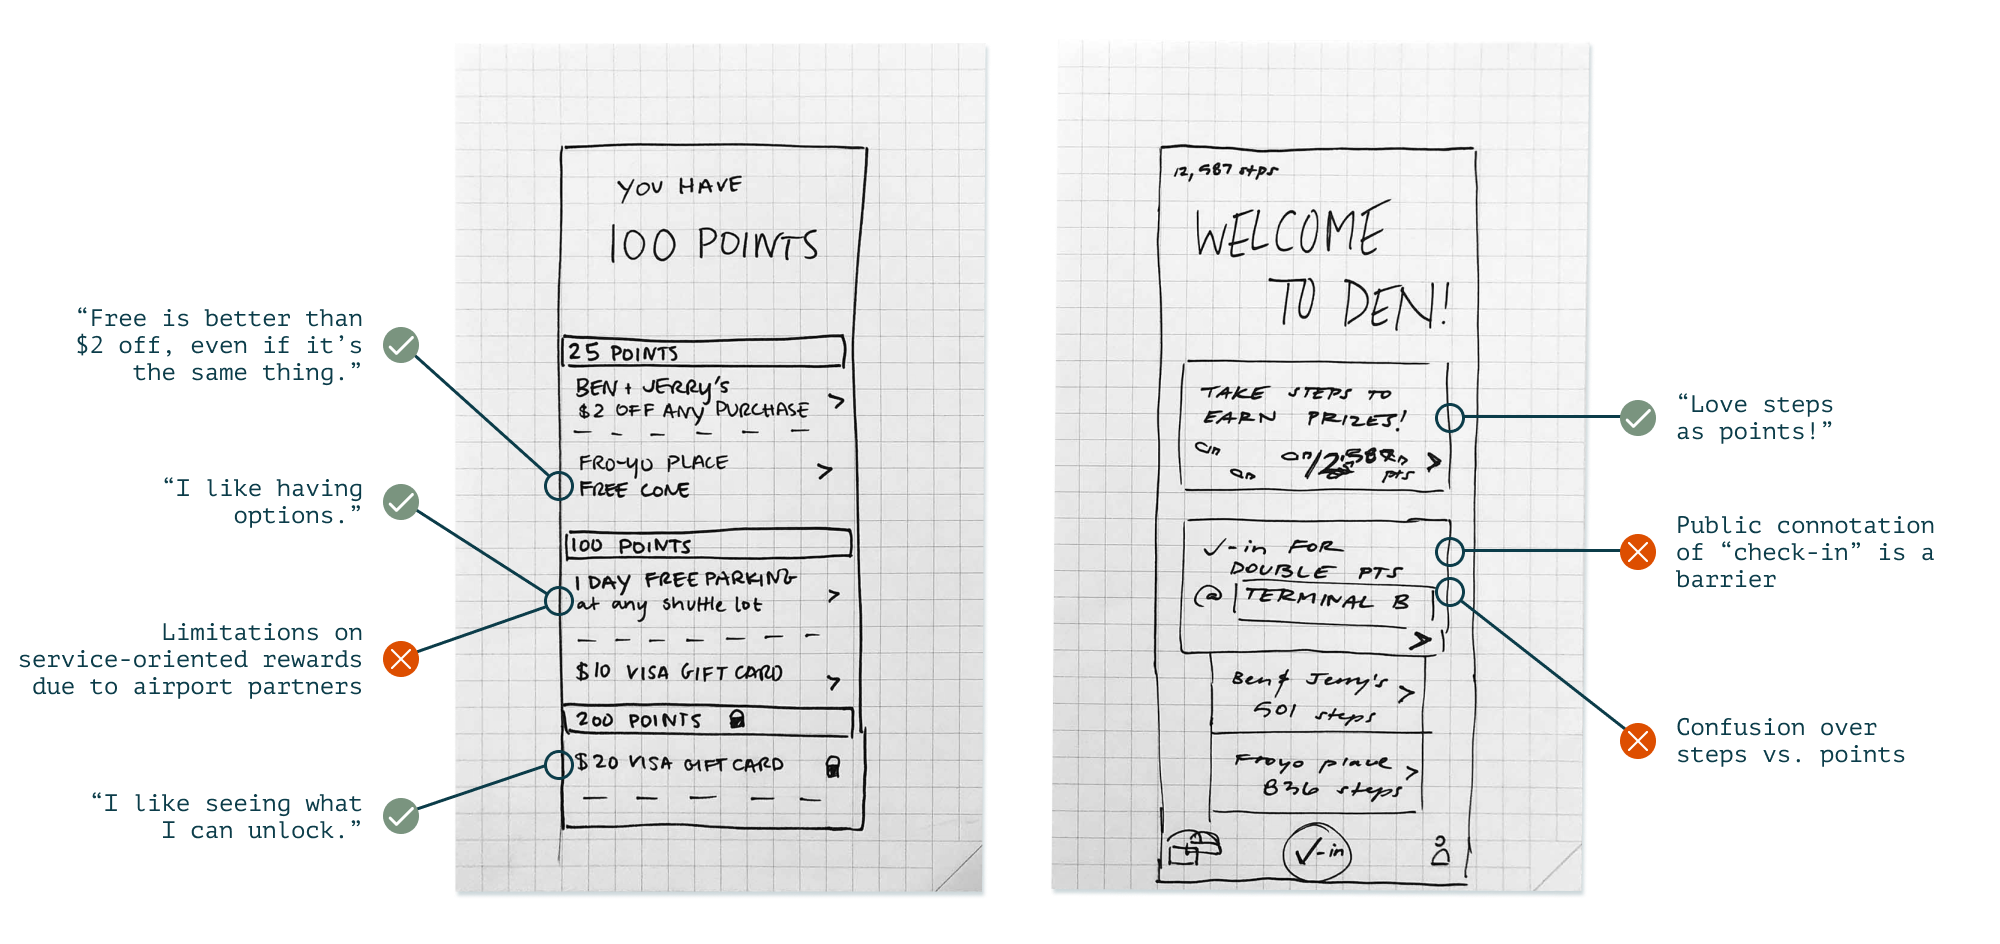 “Free is better than
$2 off, even if it’s
the same thing.”
“I like having
options.”
Limitations on
service-oriented rewards
due to airport partners
“I like seeing what
I can unlock.”
YOU HAVE
100 POINTS
25 POINTS
BEN + JERRY'S
$2 OFF ANY PURCHASE
FRO-YO PLACE
FREE CONE
100 POINTS
1 DAY FREE PARKING
at any shuttle lot
$10 VISA GIFT CARD
200 POINTS
$20 VISA GIFT CARD
12,587 stps
WELCOME
TO DEN!
TAKE STEPS TO
EARN PRIZES!
pts
✓-in FOR
DOUBLE PTS
@ TERMINAL B
Ben & Jerry's
501 steps
Froyo place
836 steps
✓-in
“Love steps
as points!”
Public connotation
of “check-in” is a
barrier
Confusion over
steps vs. points